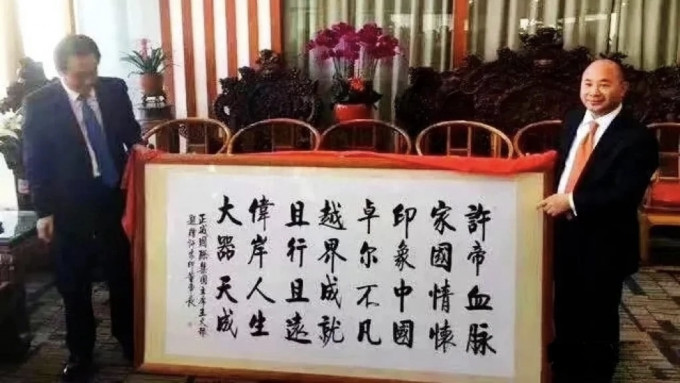 許帝血脉
家國情懷
印象中國
卓尔不凡
越界成就
且行且遠
偉岸人生
大器天成
正威國際集團主席王文銀
題贈许家印董事长